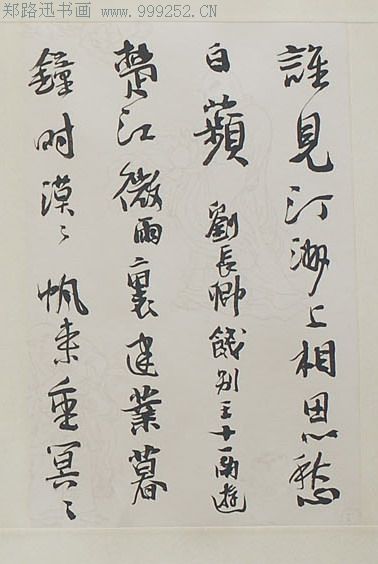 郑路迅书画 www.999252.CN
誰見汀洲上相思愁
白蘋 劉長卿餞别王十一南遊
楚江微雨裏建業暮
鐘时漠〻帆来重冥〻